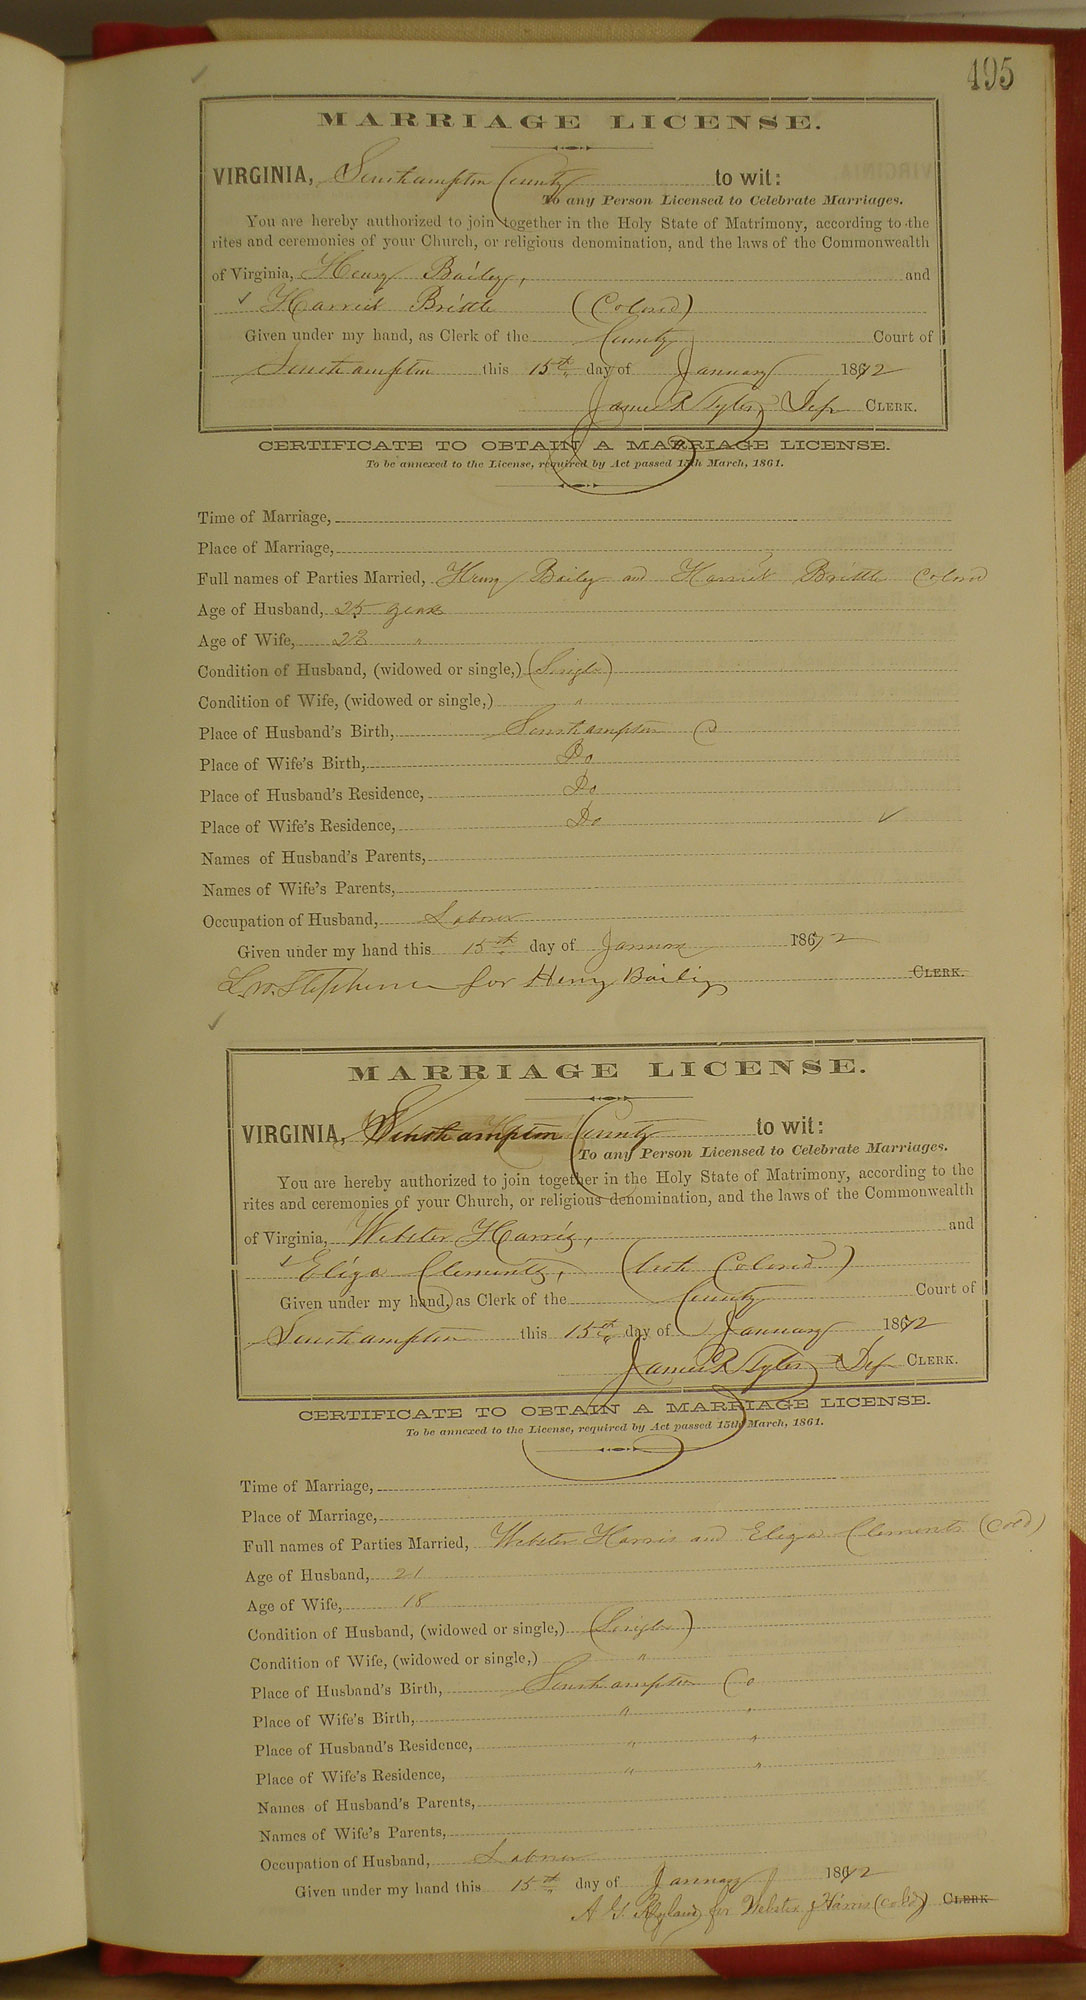 495
MARRIAGE LICENSE.
VIRGINIA, Southampton County to wit:
To any Person Licensed to Celebrate Marriages.
You are hereby authorized to join together in the Holy State of Matrimony, according to the
rites and ceremonies of your Church, or religious denomination, and the laws of the Commonwealth
of Virginia, Henry Bailey, and
Harriet Brittle (Colored)
Given under my hand, as Clerk of the County Court of
Southampton this 15th day of January 1872
James R Tyler Dep CLERK.
CERTIFICATE TO OBTAIN A MARRIAGE LICENSE.
To be annexed to the License, required by Act passed 15th March, 1861.
Time of Marriage,
Place of Marriage,
Full names of Parties Married, Henry Bailey and Harriet Brittle Colored
Age of Husband, 25 years
Age of Wife, 28 "
Condition of Husband, (widowed or single,) (Single)
Condition of Wife, (widowed or single,) "
Place of Husband's Birth, Southampton Co
Place of Wife's Birth, Do
Place of Husband's Residence, Do
Place of Wife's Residence, Do
Names of Husband's Parents,
Names of Wife's Parents,
Occupation of Husband, Laborer
Given under my hand this 15th day of January 1872
Stephenson for Henry Bailey CLERK.
MARRIAGE LICENSE.
VIRGINIA, Southampton County to wit:
To any Person Licensed to Celebrate Marriages.
You are hereby authorized to join together in the Holy State of Matrimony, according to the
rites and ceremonies of your Church, or religious denomination, and the laws of the Commonwealth
of Virginia, Webster Harris, and
Eliza Clements, (both Colored)
Given under my hand, as Clerk of the County Court of
Southampton this 15th day of January 1872
James R Tyler Dep CLERK.
CERTIFICATE TO OBTAIN A MARRIAGE LICENSE.
To be annexed to the License, required by Act passed 15th March, 1861.
Time of Marriage,
Place of Marriage,
Full names of Parties Married, Webster Harris and Eliza Clements (Cold)
Age of Husband, 21
Age of Wife, 18
Condition of Husband, (widowed or single,) (Single)
Condition of Wife, (widowed or single,) "
Place of Husband's Birth, Southampton Co
Place of Wife's Birth, " "
Place of Husband's Residence, " "
Place of Wife's Residence, " "
Names of Husband's Parents,
Names of Wife's Parents,
Occupation of Husband, Laborer
Given under my hand this 15th day of January 1872
A G Ryland for Webster Harris (cold) CLERK